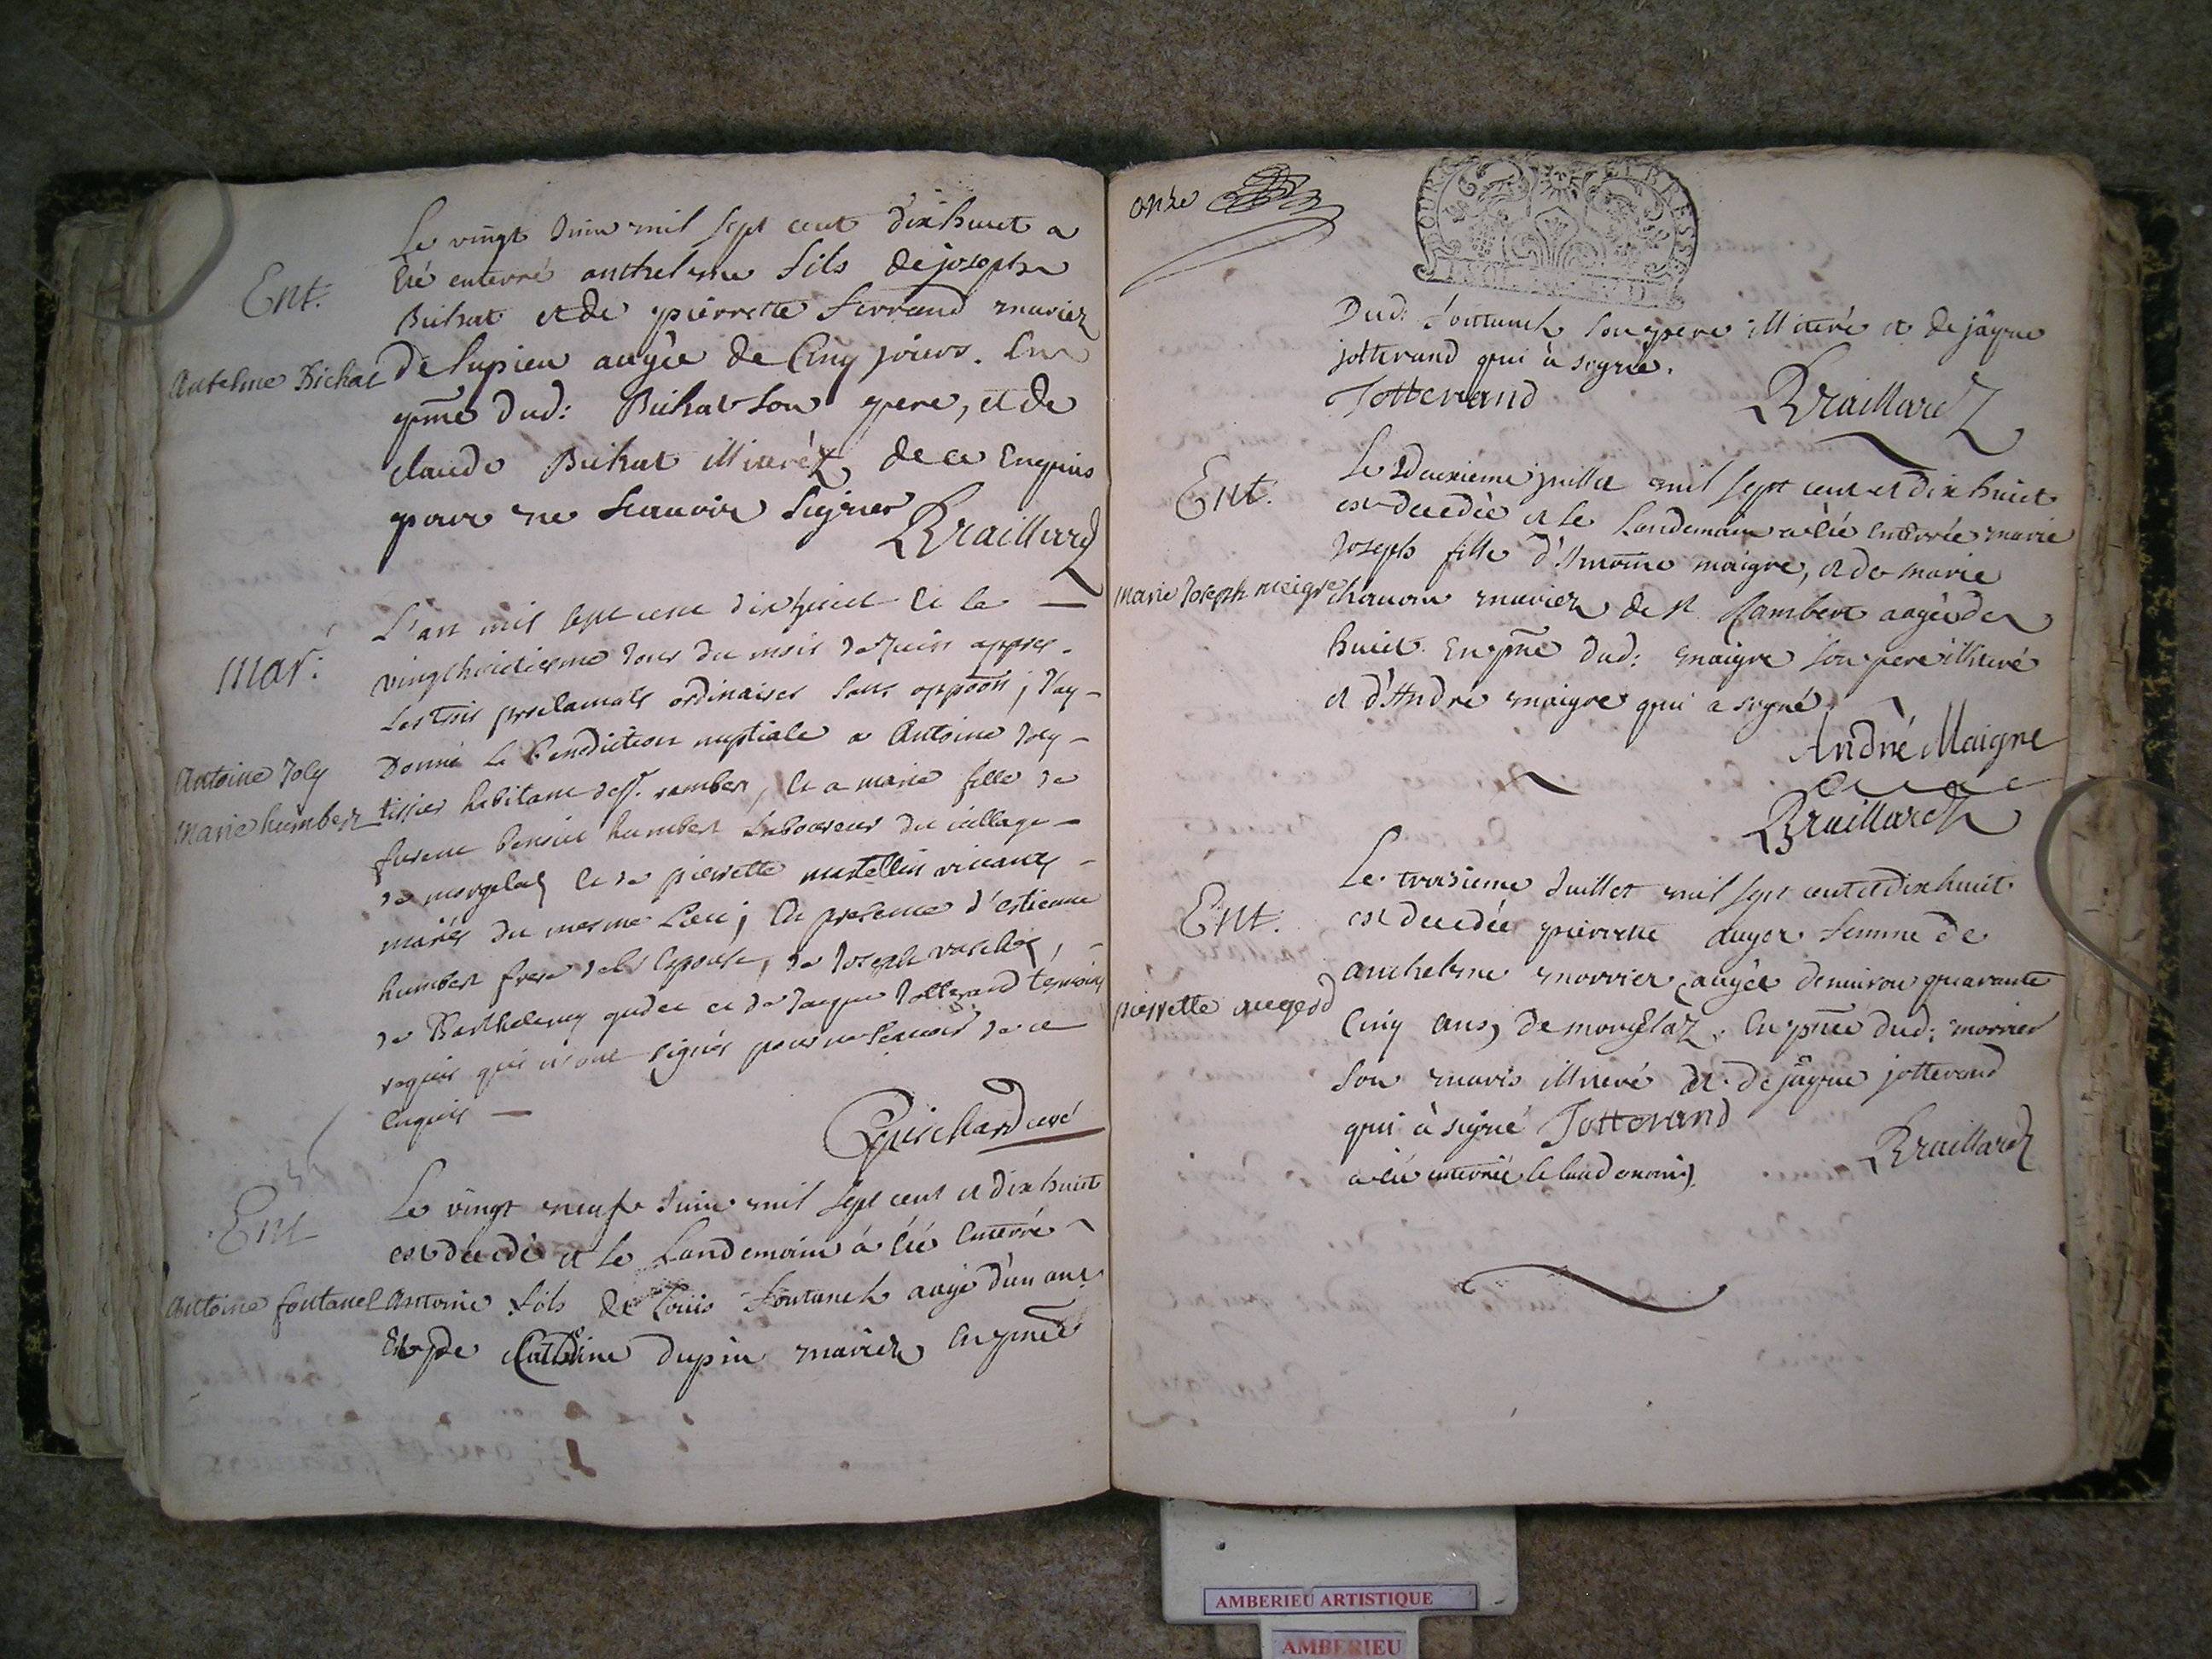 Le vingt Juin mil sept cent dixhuict a
Ent.
été enterré anthelme fils de joseph
Bichat et de pierrette ferrand mariez
Antelme Bichat
de Supieu augée de Cinq jours. En
pñce dud: Bichat son pere, et de
claude Bichat illiteréz de ce Enquis
pour ne scauoir signer
Braillard
L'an mil sept cent dixhuict et le —
Mar:
vingthuictiesme Jour du mois de Juin appres
Les trois proclamats ordinaires sans oppoõn; J'ay
Donné la benediction nuptiale a Antoine Joly
Antoine Joly
Marie humbert
tissier habitant de St. rambert, et a marie fille de
furent benoit humbert Laboureur du village
de morgelas et de pierrette martellin vivants
mariés du mesme Lieu; En presence d'estienne
humbert frere de la d. Espouse, de Joseph
de Barthelemy et de Jacque Jotterand témoins
requis qui n'ont signés pour ne scauoir de ce
Enquis —
Guichard curé
Ent
Le vingt neuf Juin mil sept cent et dixhuict
est decedé et le Landemain à été Enterré
Antoine fontanel
Antoine fils de Louis fontanel augé d'un ans
Et de Catherine dupin mariez En pñce
onze
Dud: fontanel son pere illiteré et de jâque
jotterand qui à signé.
Jotterand
Braillard
Ent.
Le Deuxieme juillet mil sept cent et dix huict
est decedée et le Landemain a été enterrée marie
Joseph fille d'Antoine maigre, et de marie
Marie Joseph meigre
chauvin mariez de St. Rambert aagée de
huict. En pñce dud: maigre son pere illiteré
et d'André maigre qui a signé
André Maigre
Braillard
Le troisieme Juillet mil sept cent et dixhuict
Ent.
est decedée pierrette auger femme de
anthelme morrier augée d'environ quarante
pierrette augerd
Cinq ans, de mongelaz, En pñce dud: morrier
son maris illiteré et de jâque jotterand
qui à signé Jotterand
Braillard
a été enterrée le landemain
AMBERIEU ARTISTIQUE
AMBERIEU